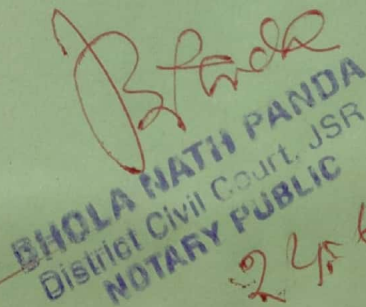 BPanda
BHOLA NATH PANDA
District Civil Court, JSR
NOTARY PUBLIC